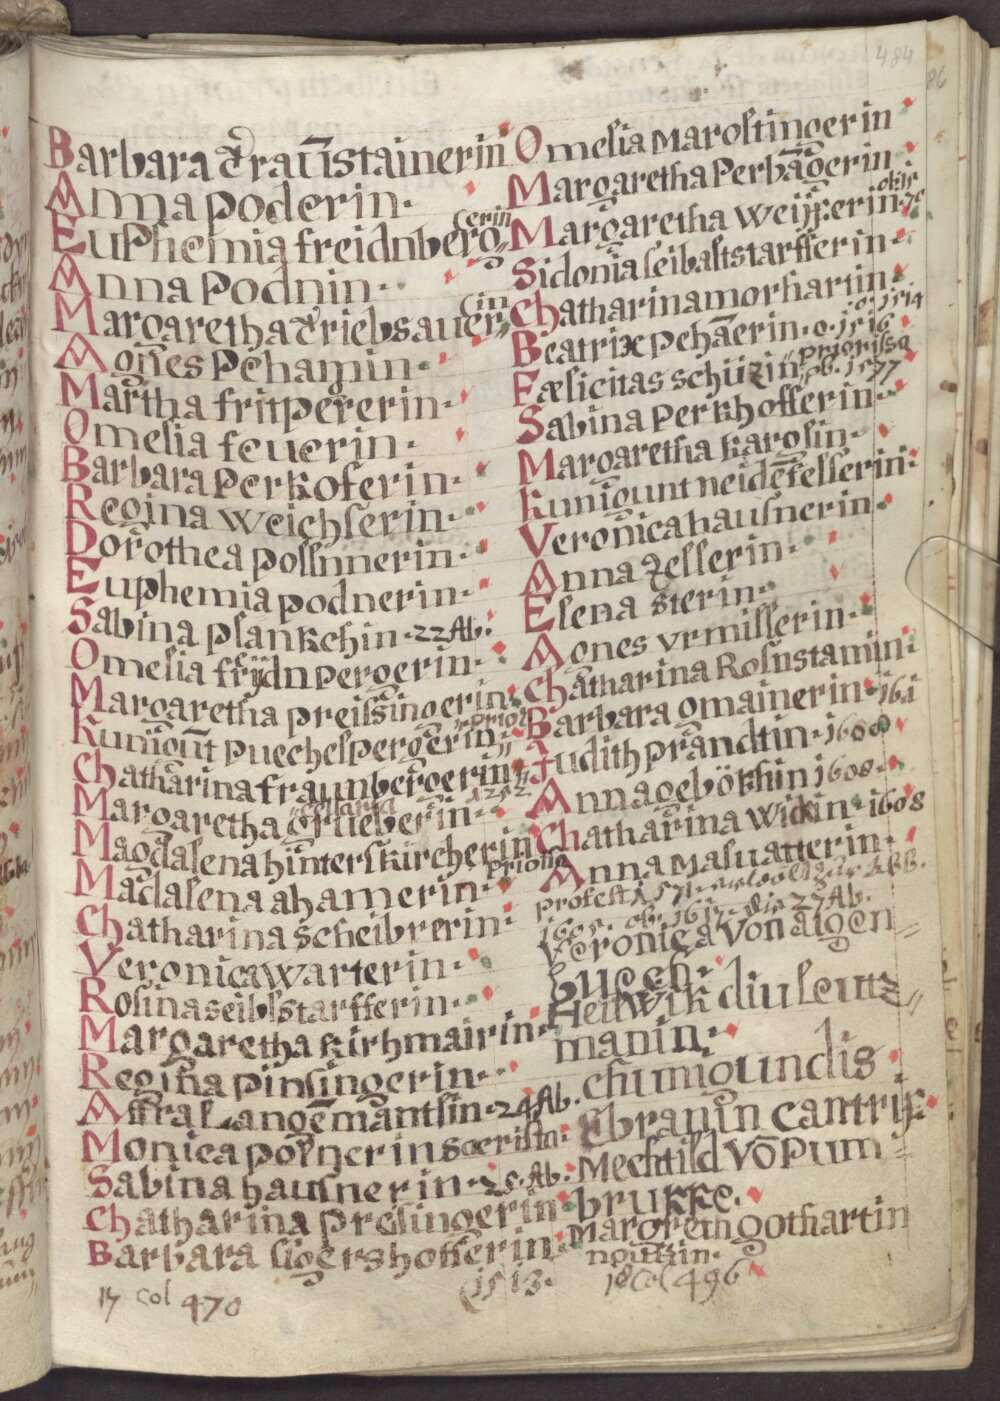 484
86
Barbara Traūnstainerin
Anna Poderin.
cerin
Euphemia freidnberg
Anna Podnin.
cin
Margaretha Triebsauer
Agnes Pehamin.
Martha fritpergerin.
Omelia feuerin.
Barbara Perkoferin.
Regina Weichserin.
Dorothea Polsnnerin.
Euphemia Podnerin.
Sabina Plankchin. 22 Ab.
Omelia frÿdnpergerin.
Margaretha Preissingerin
prior
Kunigūt Puechelspergerin
Chatharina fraunbergerin
cellaria
Margaretha grueberin.
Magdalena hinterskircherin
priorissa
Madalena ahamerin.
Chatharina Scheibrerin
Veronica Warterin.
Rosina Seiblstarfferin.
Margaretha Kirhmairin
Regina Pinsingerin.
Affra Langēmantlin. 24 Ab.
Monica Poygnerin sacrista
Sabina hausnerin. 25. Ab.
Chatharina Preisingerin
Barbara sigershofferin
1513.
17 col 470
Omelia Maroltingerin
Margaretha Perbāgerin
Margaretha Weixerin
Sidonia seibaltstarfferin
Chatharina morhartin.
o. 1514
Beatrix Pehāerin. o. 1516
priorissa
Fælicitas Schüzin ob. 1577
Sabina Perkhofferin.
Margaretha Karolin.
Kunigunt neidēfelserin.
Veronica hausnerin
Anna Zellerin.
Elena Sterin.
Agnes Vrmillerin.
Chatharina Rosnstamin.
Barbara Gmainerin. 161
Judith Prandtin. 1600
Anna geböckhin 1608.
Chatharina Wickin. 1608
Anna Masuatterin.
1605. ob. 1617. die 27 Ab.
Veronica von aigen
buech.
Heilwik diu leutz
manin.
Chunigundis
Ebranin Cantrix
Mechtild vō Prum
brukke.
Margreth gothartin
18 col 496